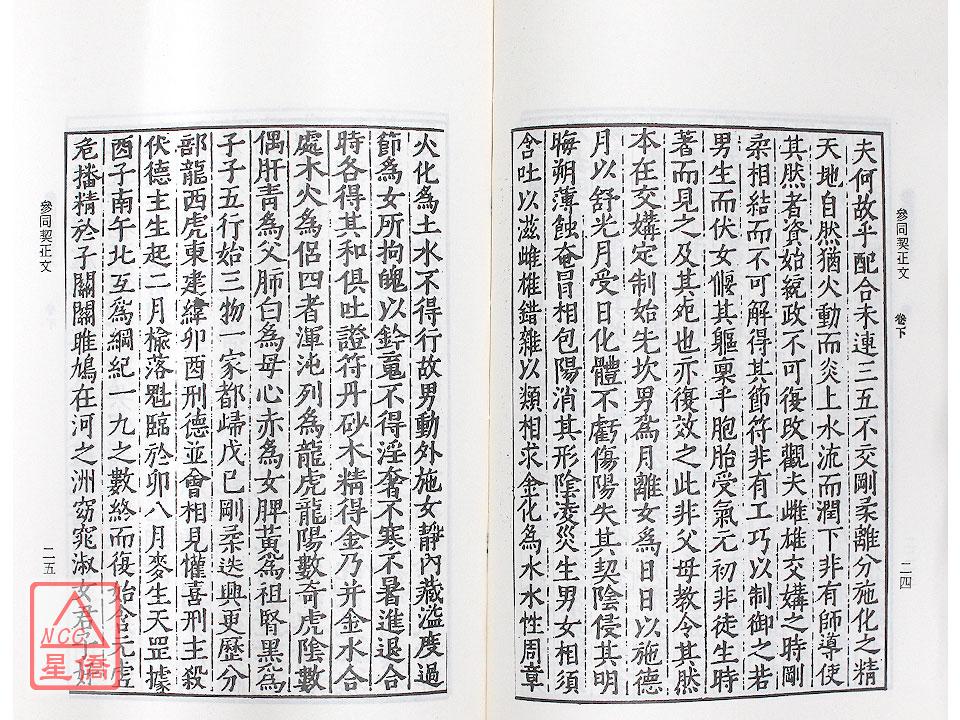 參同契正文 卷下 二四
夫何故乎配合未連三五不交剛柔離分施化之精
天地自然猶火動而炎上水流而潤下非有師導使
其然者資始統政不可復改觀夫雌雄交媾之時剛
柔相結而不可解得其節符非有工巧以制御之若
男生而伏女偃其軀稟乎胞胎受氣元初非徒生時
著而見之及其死也亦復效之此非父母教令其然
本在交媾定制始先坎男為月離女為日日以施德
月以舒光月受日化體不虧傷陽失其契陰侵其明
晦朔薄蝕奄冒相包陽消其形陰淩災生男女相須
含吐以滋雌雄錯雜以類相求金化為水水性周章
火化為土水不得行故男動外施女靜內藏溢度過
節為女所拘魄以鈐䰟不得淫奢不寒不暑進退合
時各得其和俱吐證符丹砂木精得金乃并金水合
處木火為侶四者渾沌列為龍虎龍陽數奇虎陰數
偶肝青為父肺白為母心赤為女脾黃為祖腎黑為
子子五行始三物一家都歸戊己剛柔迭興更歷分
部龍西虎東建緯卯酉刑德並會相見懽喜刑主殺
伏德主生起二月榆落魁臨於卯八月麥生天罡據
酉子南午北互為綱紀一九之數終而復始含元虛
危播精於子關關雎鳩在河之洲窈窕淑女君子好
參同契正文 二五
NCC
星僑